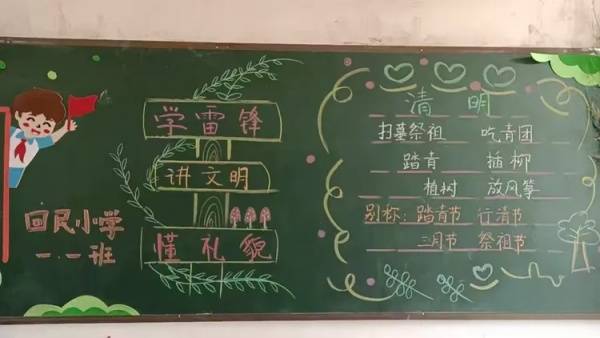 回民小学
一.一班
学雷锋
讲文明
懂礼貌
清明
扫墓祭祖 吃青团
踏青 插柳
植树 放风筝
别称：踏青节 行清节
三月节 祭祖节